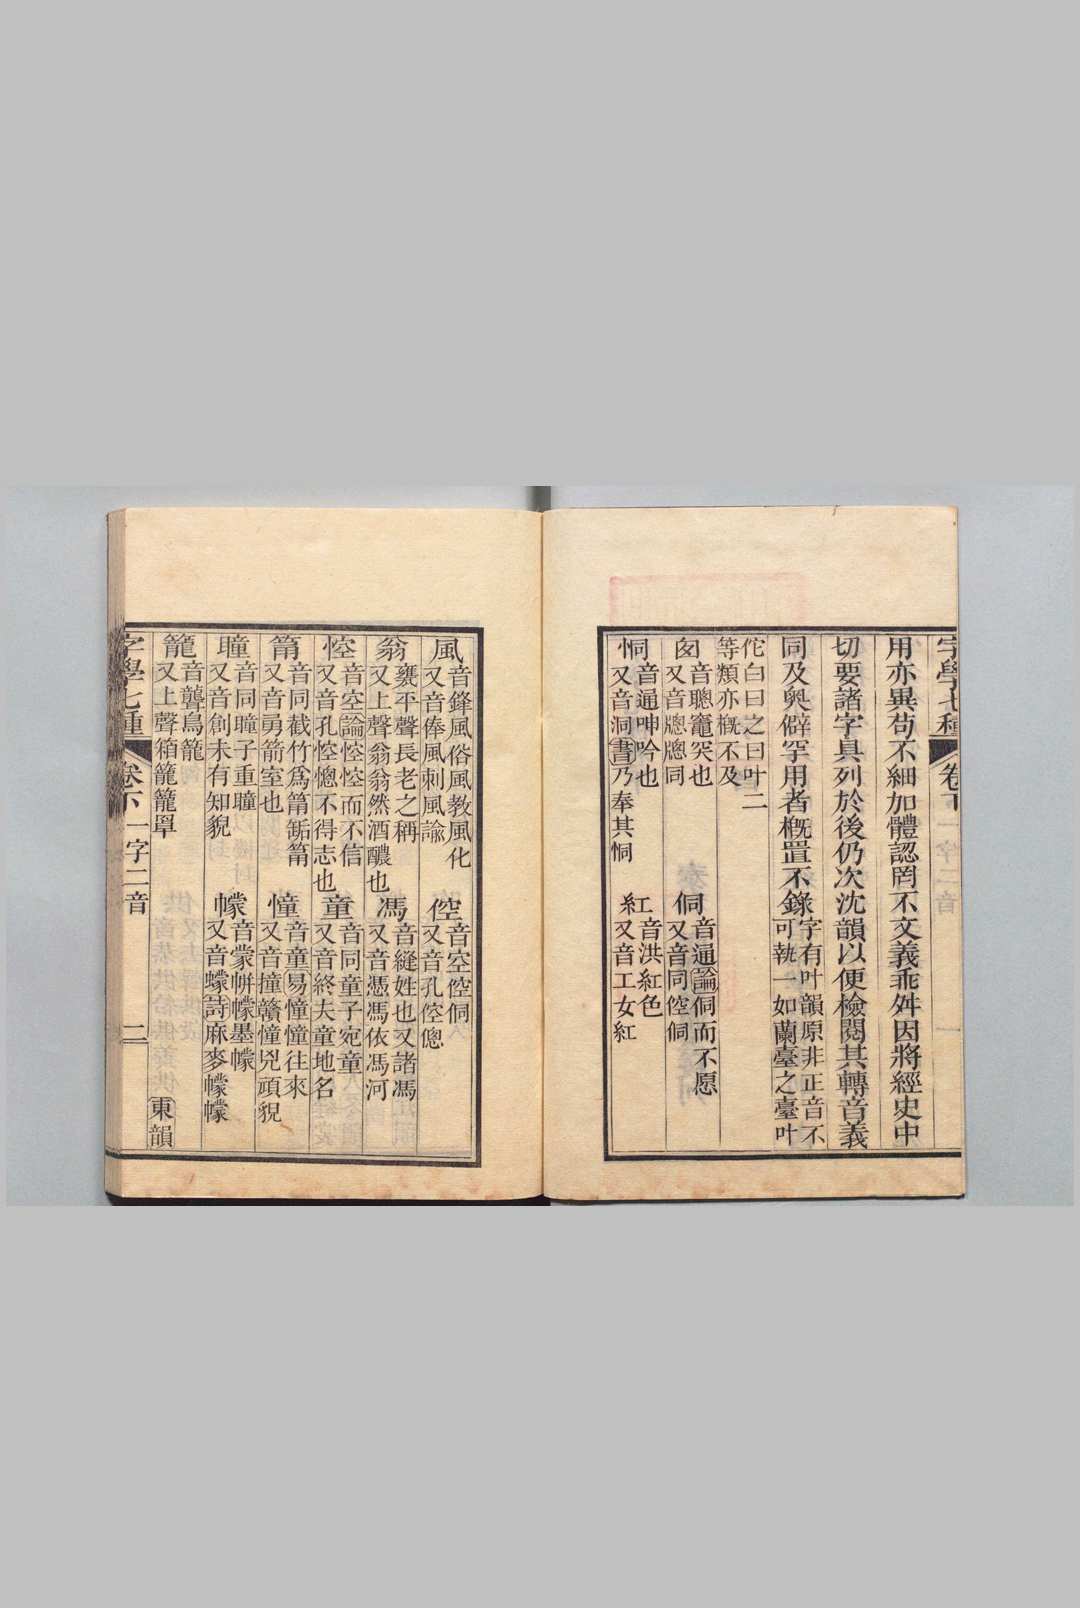 字學七種 卷下 一字二音 一
用亦異苟不細加體認罔不文義乖舛因將經史中
切要諸字具列於後仍次沈韻以便檢閱其轉音義
同及奥僻罕用者槪置不錄字有叶韻原非正音不
可執一如蘭臺之臺叶
佗白日之日叶二
等類亦槪不及
囪音聰竈突也
又音牎牎同
侗音通論侗而不愿
又音同倥侗
恫音通呻吟也
又音洞書乃奉其恫
紅音洪紅色
又音工女紅
風音鋒風俗風教風化
又音俸風刺風諭
倥音空倥侗
又音孔倥傯
翁甕平聲長老之稱
又上聲翁翁然酒醲也
馮音縫姓也又諸馮
又音憑馮依馮河
悾音空論悾悾而不信
又音孔悾憁不得志也
童音同童子宛童
又音終夫童地名
筩音同截竹爲筩鉐筩
又音勇箭室也
憧音童易憧憧往來
又音撞贛憧兇頑貌
瞳音同瞳子重瞳
又音創未有知貌
幪音蒙帡幪墨幪
又音蠓詩麻麥幪幪
籠音聾鳥籠
又上聲箱籠籠罩
字學七種 卷下 一字二音 二 東韻